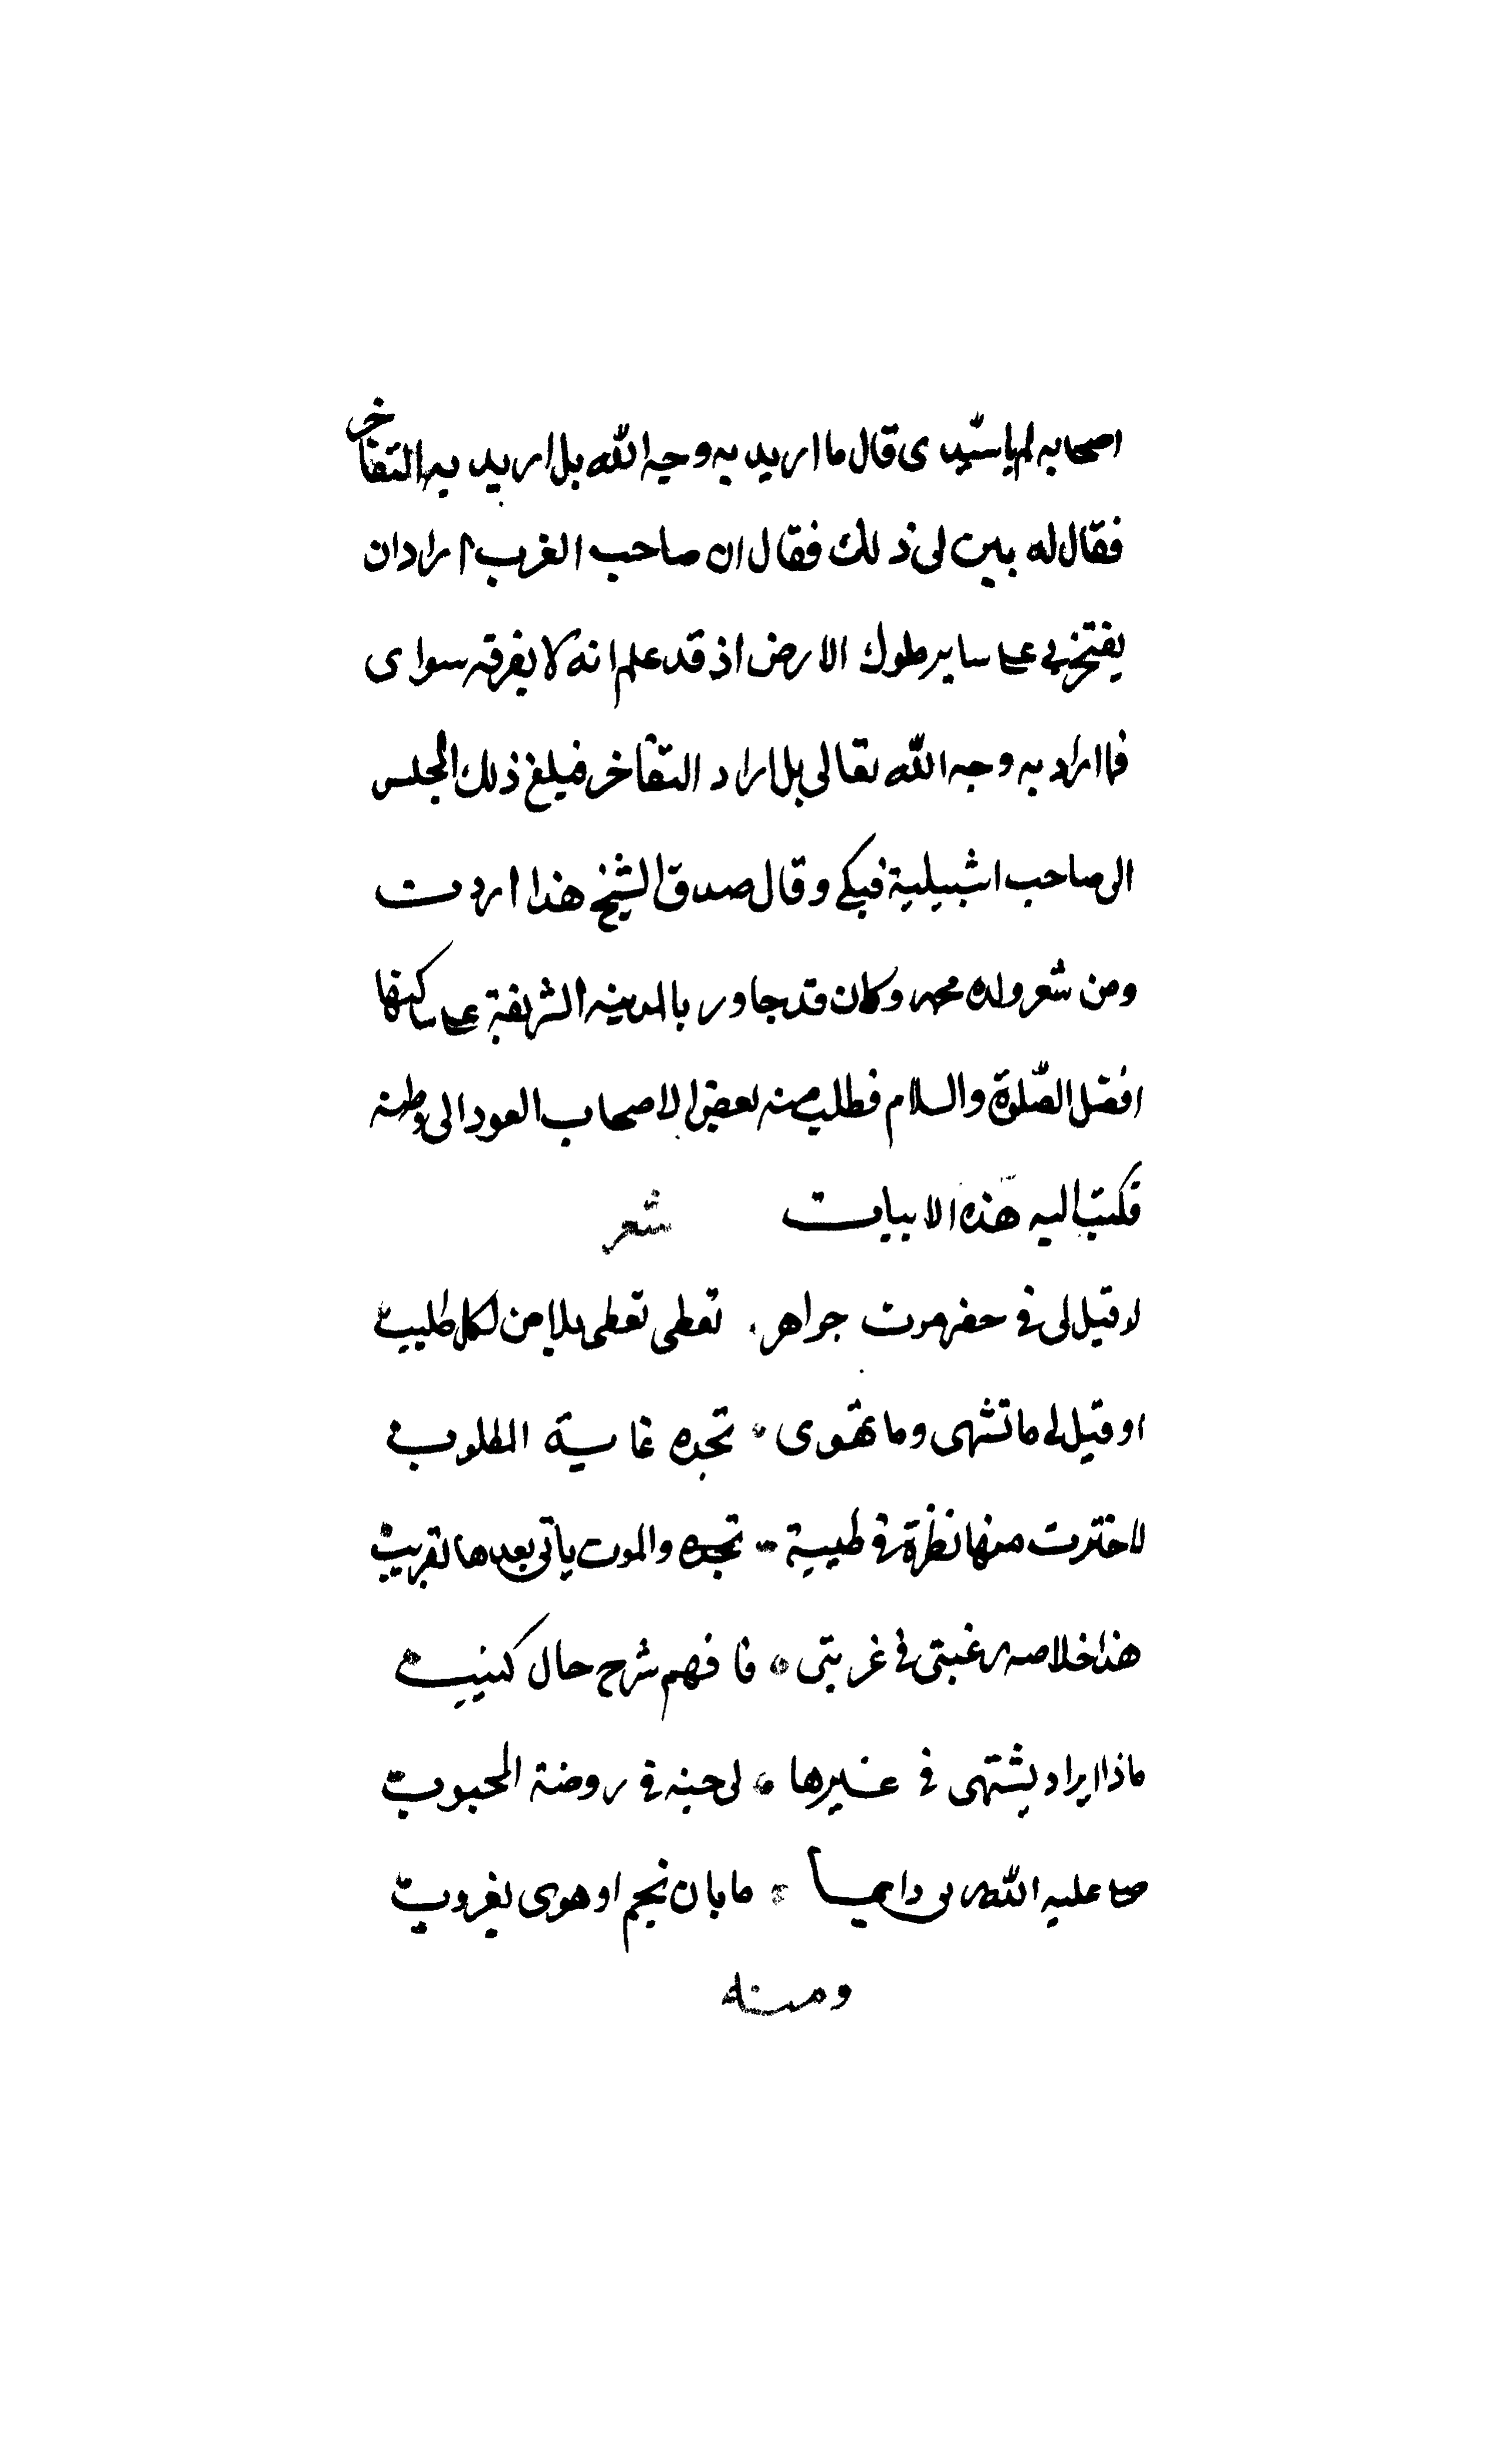 اصحابه لم يا سيّدى قال ما اريد به وجه الله بل اريد به التفاخر
فقال له بين لى ذلك فقال ان صاحب الغرب اراد ان
يفتخر بى على ساير ملوك الارض اذ قد علم انه لا يفرقه سواى
فما اراد به وجه الله تعالى بل اراد التفاخر فبلغ ذلك المجلس
الى صاحب اشبيلية فبكى وقال صدق الشيخ هذا اردت
ومن شعر ولده محمد وكان قد جاور بالمدينه الشريفة على ساكنها
افضل الصّلوة والسلام فطلب منه بعض الاصحاب العود الى وطنه
فكتب اليه هذه الابيات شعر
لو قيل لى فى حضرموت جواهر تعطى تعطى بلا من لكل طليب
او قيل لى ما تشتهى وما تهوى تجده غاية المطلوب
لاخترت منها نظرة فى طيبة والموت ياتى بعدها بقريب
هذا خلاصه رغبتى فى غربتى فافهم شرح حال كئيب
ماذا يراد يشتهى فى غيرها لى جنه فى روضة المحبوب
صلى عليه الله ربى دايما ما بان نجم او هوى بغروب
ومنه